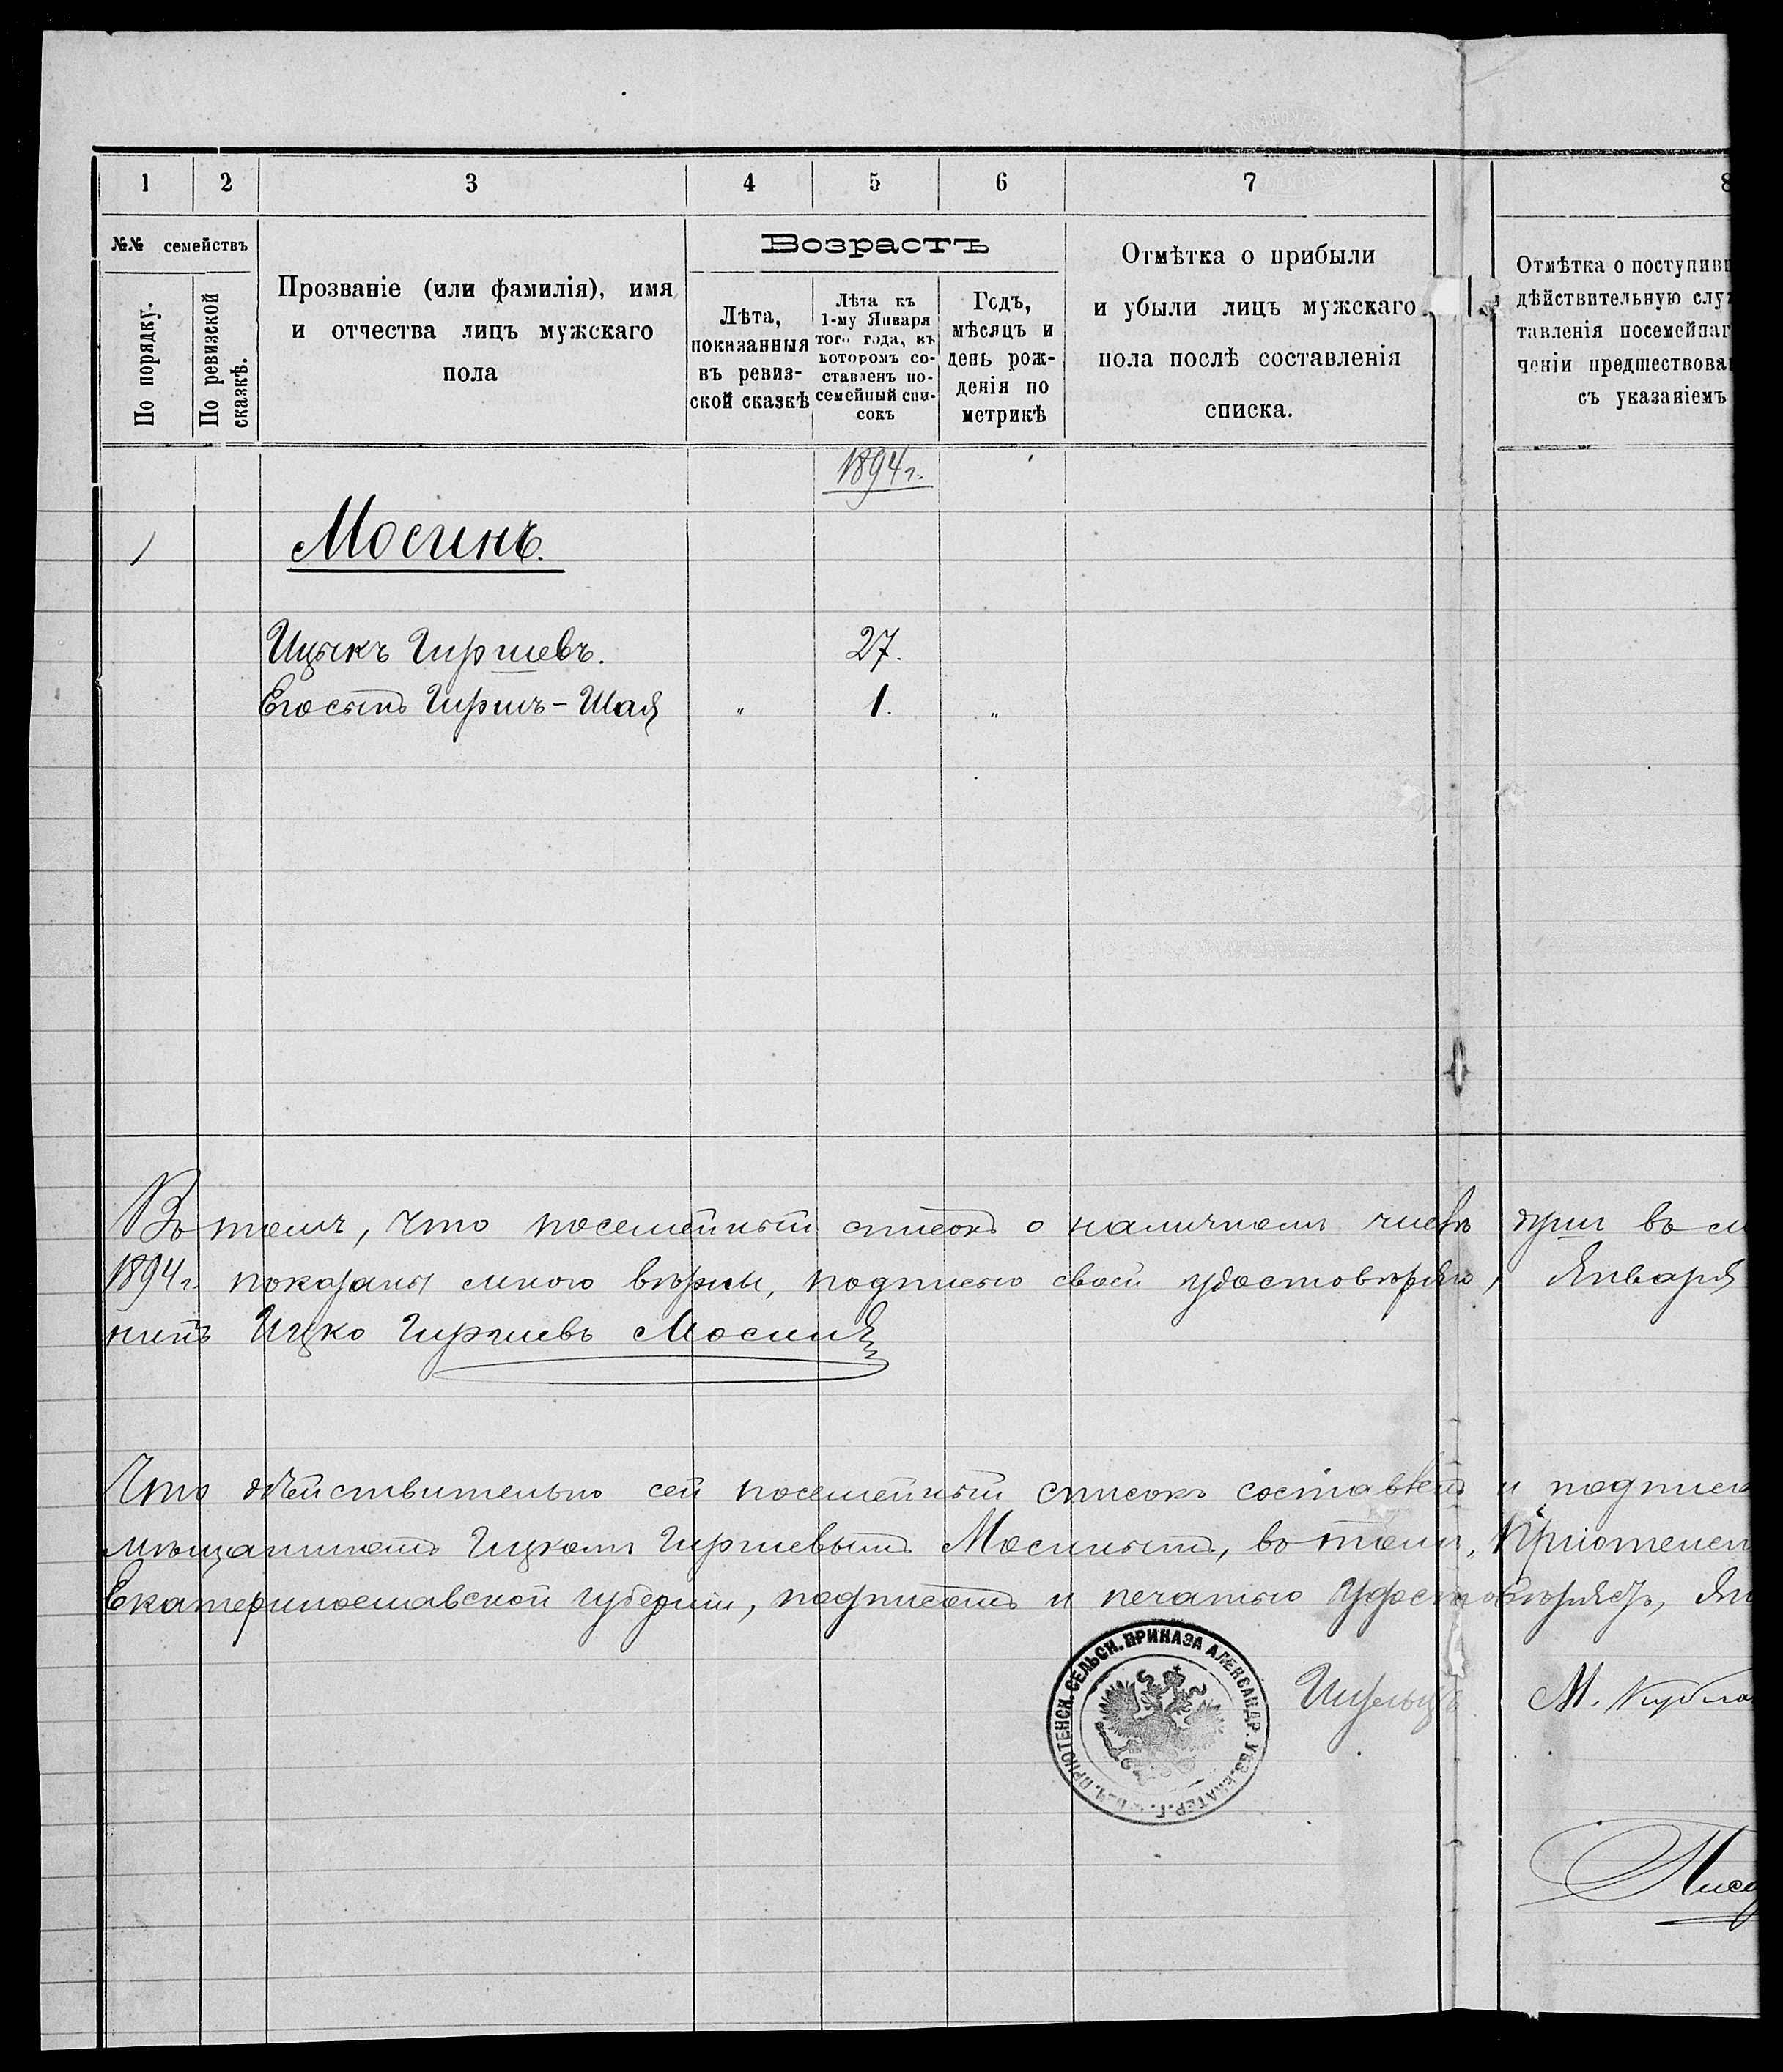 1 2 3 4 5 6 7 8
№№ семействъ
По порядку.
По ревизской сказкѣ.
Прозваніе (или фамилія), имя
и отчества лицъ мужскаго
пола
Возрастъ
Лѣта,
показанныя
въ ревиз-
ской сказкѣ
Лѣта къ
1-му Января
того года, въ
которомъ со-
ставленъ по-
семейный спи-
сокъ
Годъ,
мѣсяцъ и
день рож-
денія по
метрикѣ
Отмѣтка о прибыли
и убыли лицъ мужскаго
пола послѣ составленія
списка.
Отмѣтка о поступивш
дѣйствительную служ
тавленія посемейнаг
ченіи предшествова
съ указаніемъ
1894 г.
1 Мосинъ.
Ицыкъ Гиршевъ. 27.
Его сынъ Гиршъ-Шая " 1. "
Въ томъ, что посемейный списокъ о наличномъ числѣ душъ въ
1894 г. показаны мною вѣрны, подписью своей удостовѣряю, Января
нинъ Ицко Гиршевъ Мосинъ
Что дѣйствительно сей посемейный списокъ составленъ и подписа
мѣщаниномъ Ицкомъ Гиршевымъ Мосинымъ, въ томъ, Пріютенск
Екатеринославской губерніи, подписомъ и печатью удостовѣряетъ, Ян
ПРІЮТЕНСК. СЕЛЬСК. ПРИКАЗА АЛЕКСАНДР. УѢЗ. ЕКАТЕР. Г.
Шульцъ М.
Писа